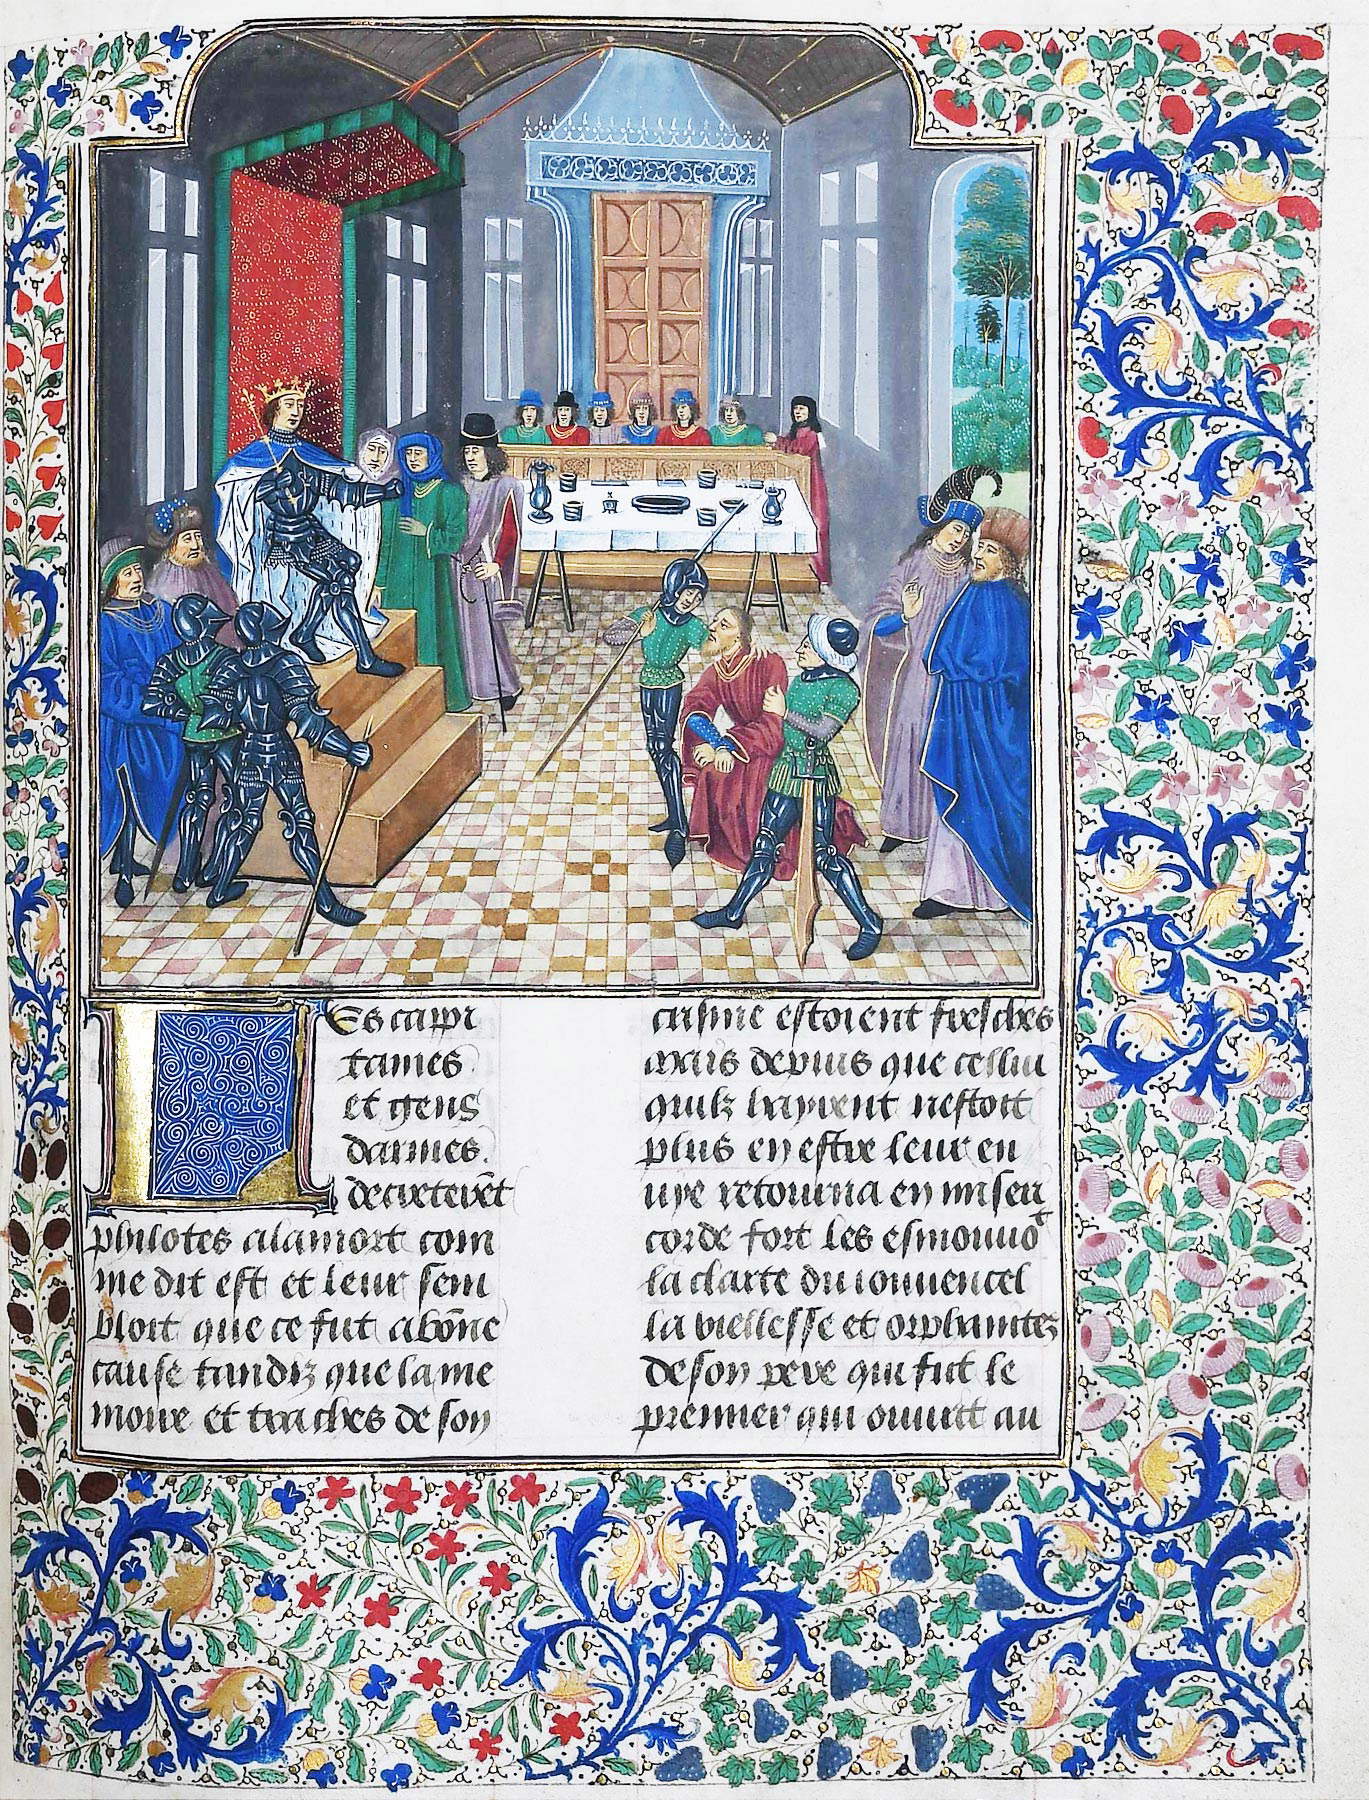 Es cappi
taines
et gens
darmes
decreteret̄
philotes a la mort com
me dit est et leur sem
bloit que ce fut a bōne
cause tandiz que la me
moire et traches de son
crisme estoient fresches
Mais depuis que cellui
quilz hayoient nestoit
plus en estre leur en
uye retourna en miseri
corde fort les esmouuoͭ
la clarte du iouuencel
la viellesse et orphanitez
de son pere qui fut le
premier qui ouurit au